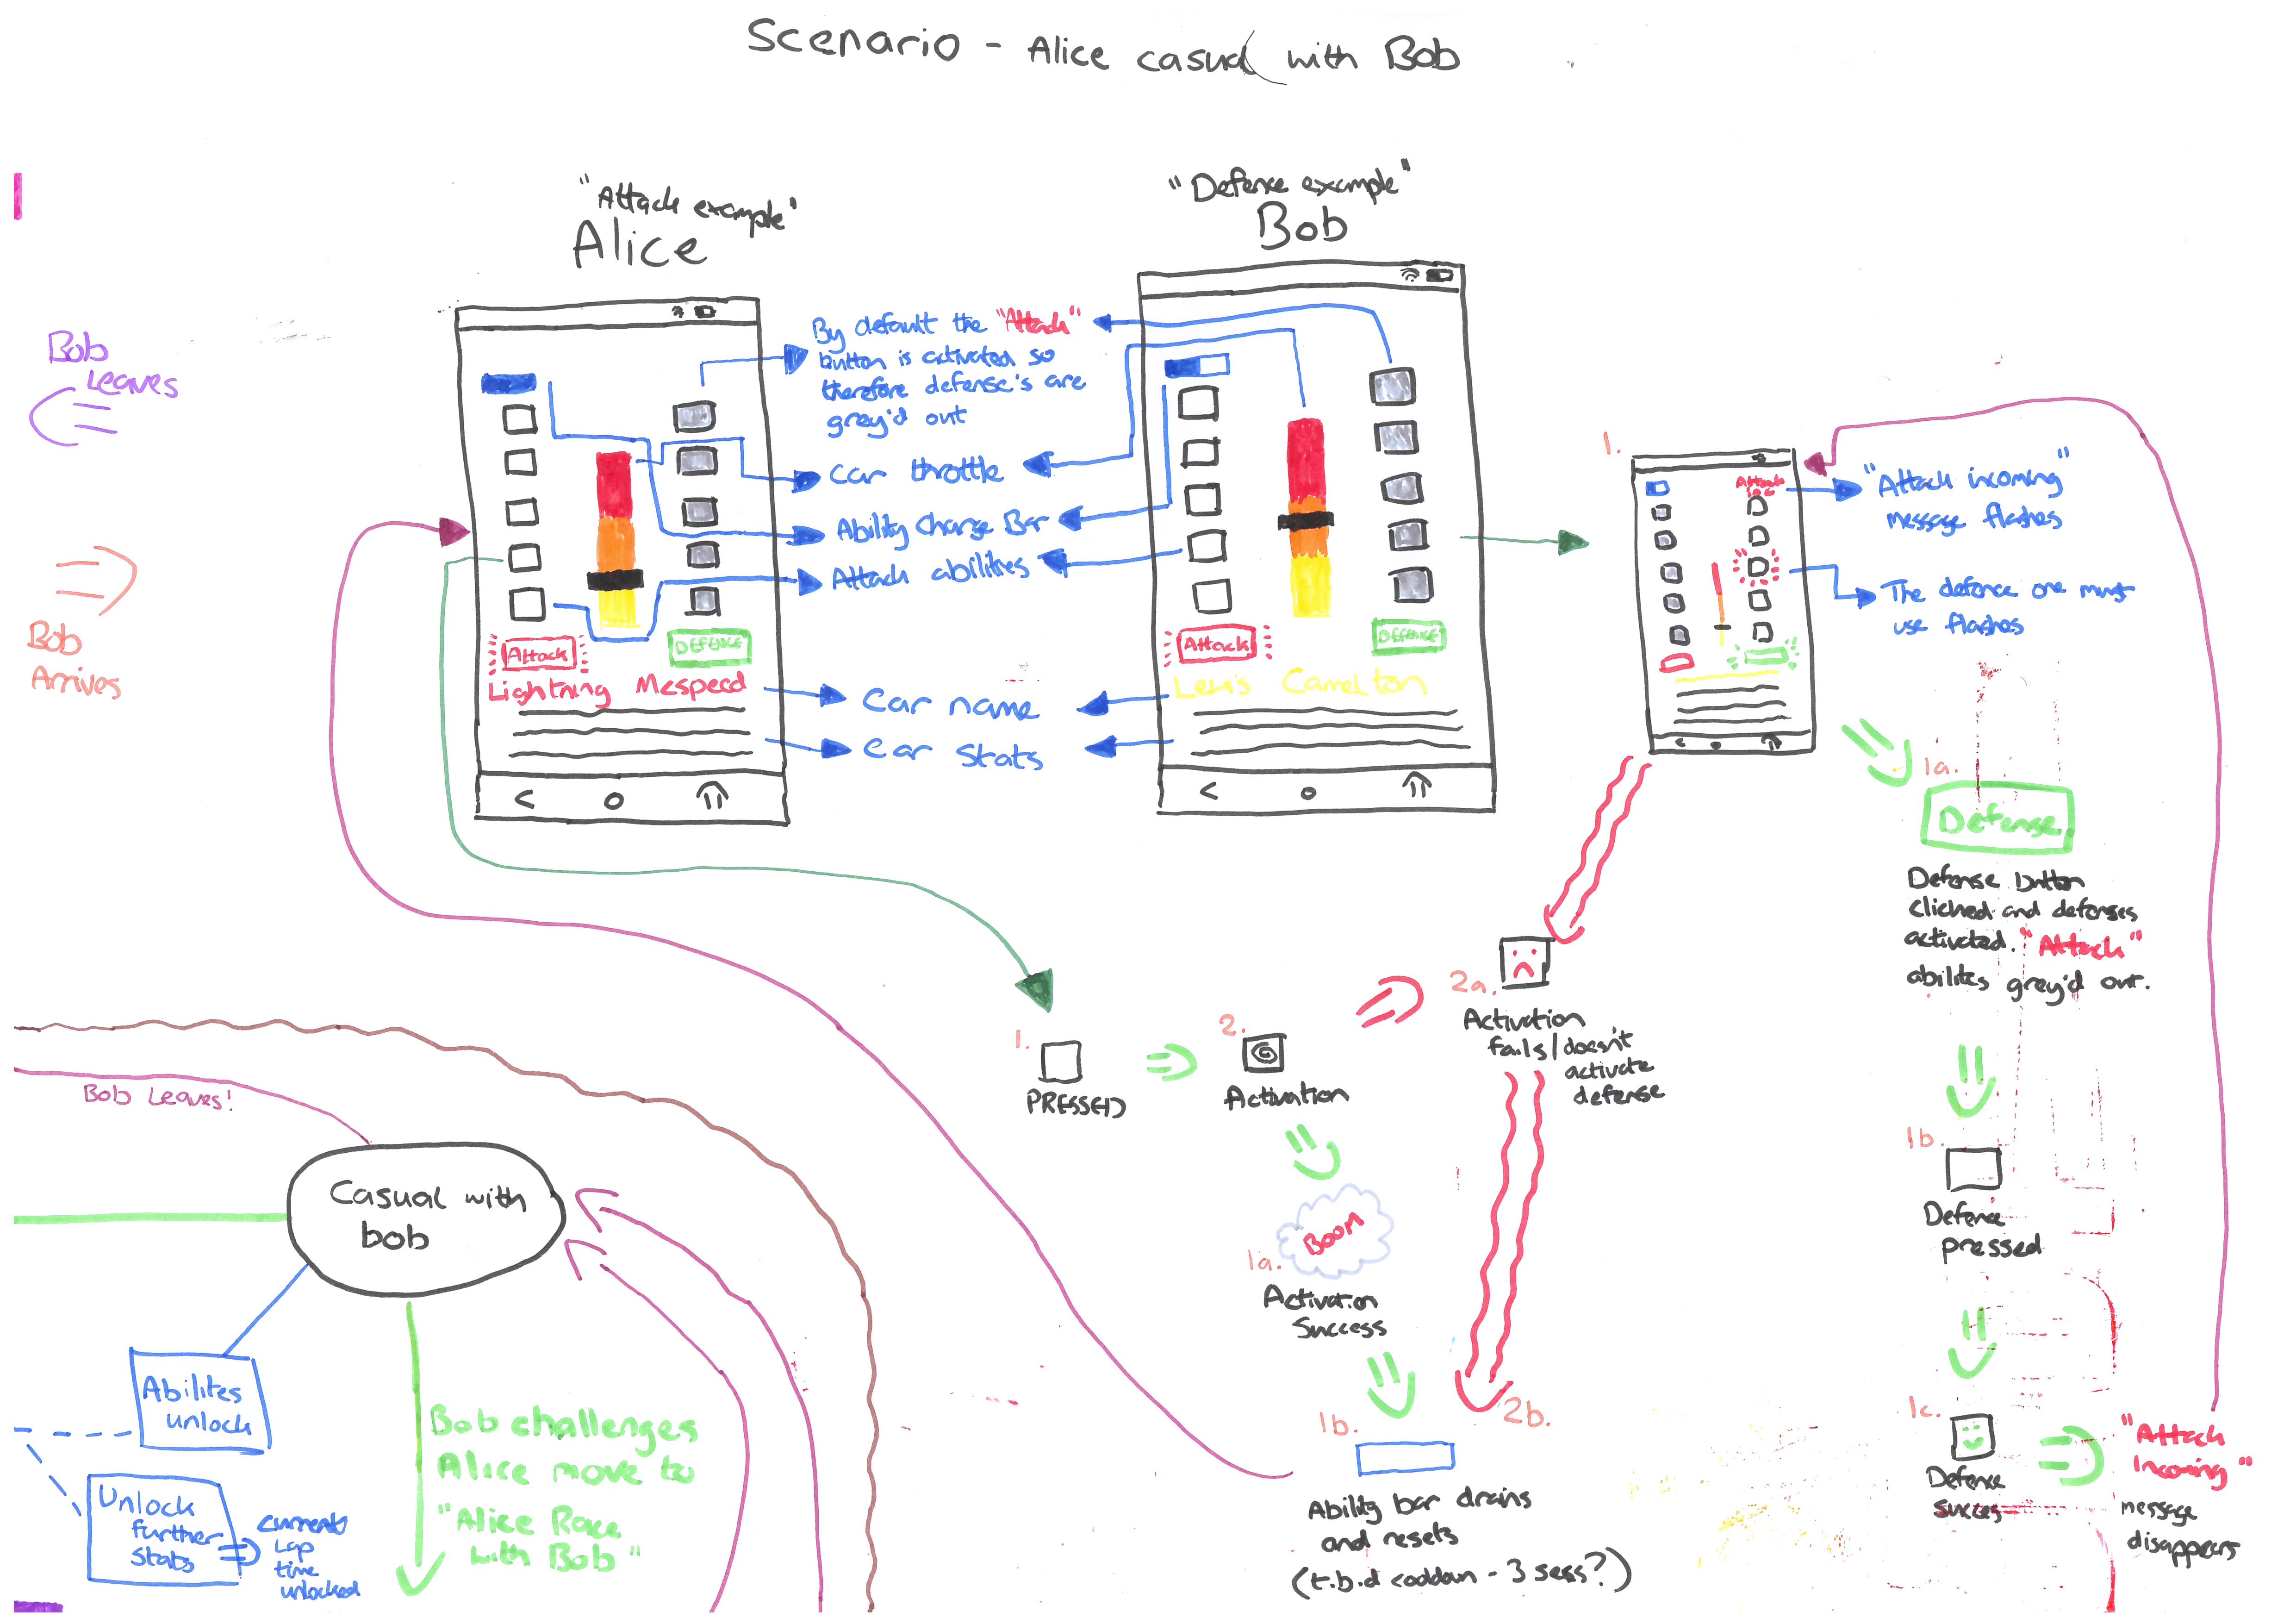 Scenario - Alice casual with Bob
"Attack example"
Alice
"Defence example"
Bob
Bob
Leaves
Bob
Arrives
By default the "Attack"
button is activated so
therefore defense's are
grey'd out
Car throttle
Ability Charge Bar
Attack abilities
Attack
DEFENCE
Lightning Mcspeed
Car name
Car stats
Attack
DEFENCE
Lewis Camelton
1.
Attack
Inc
"Attack incoming"
message flashes
The defence one must
use flashes
1a.
Defense
Defense button
clicked and defenses
activated. "Attack"
abilites grey'd out.
1b.
Defence
pressed
1c.
Defence
succes
"Attack
Incoming"
message
disappears
1.
PRESSED
2.
Activation
2a.
Activation
fails/doesn't
activate
defense
BOOM
1a.
Activation
Success
1b.
2b.
Ability bar drains
and resets
(t.b.d cooldown - 3 secs?)
Bob Leaves!
Casual with
bob
Abilites
unlock
Unlock
further
stats
current
Lap
time
unlocked
Bob challenges
Alice move to
"Alice Race
with Bob"